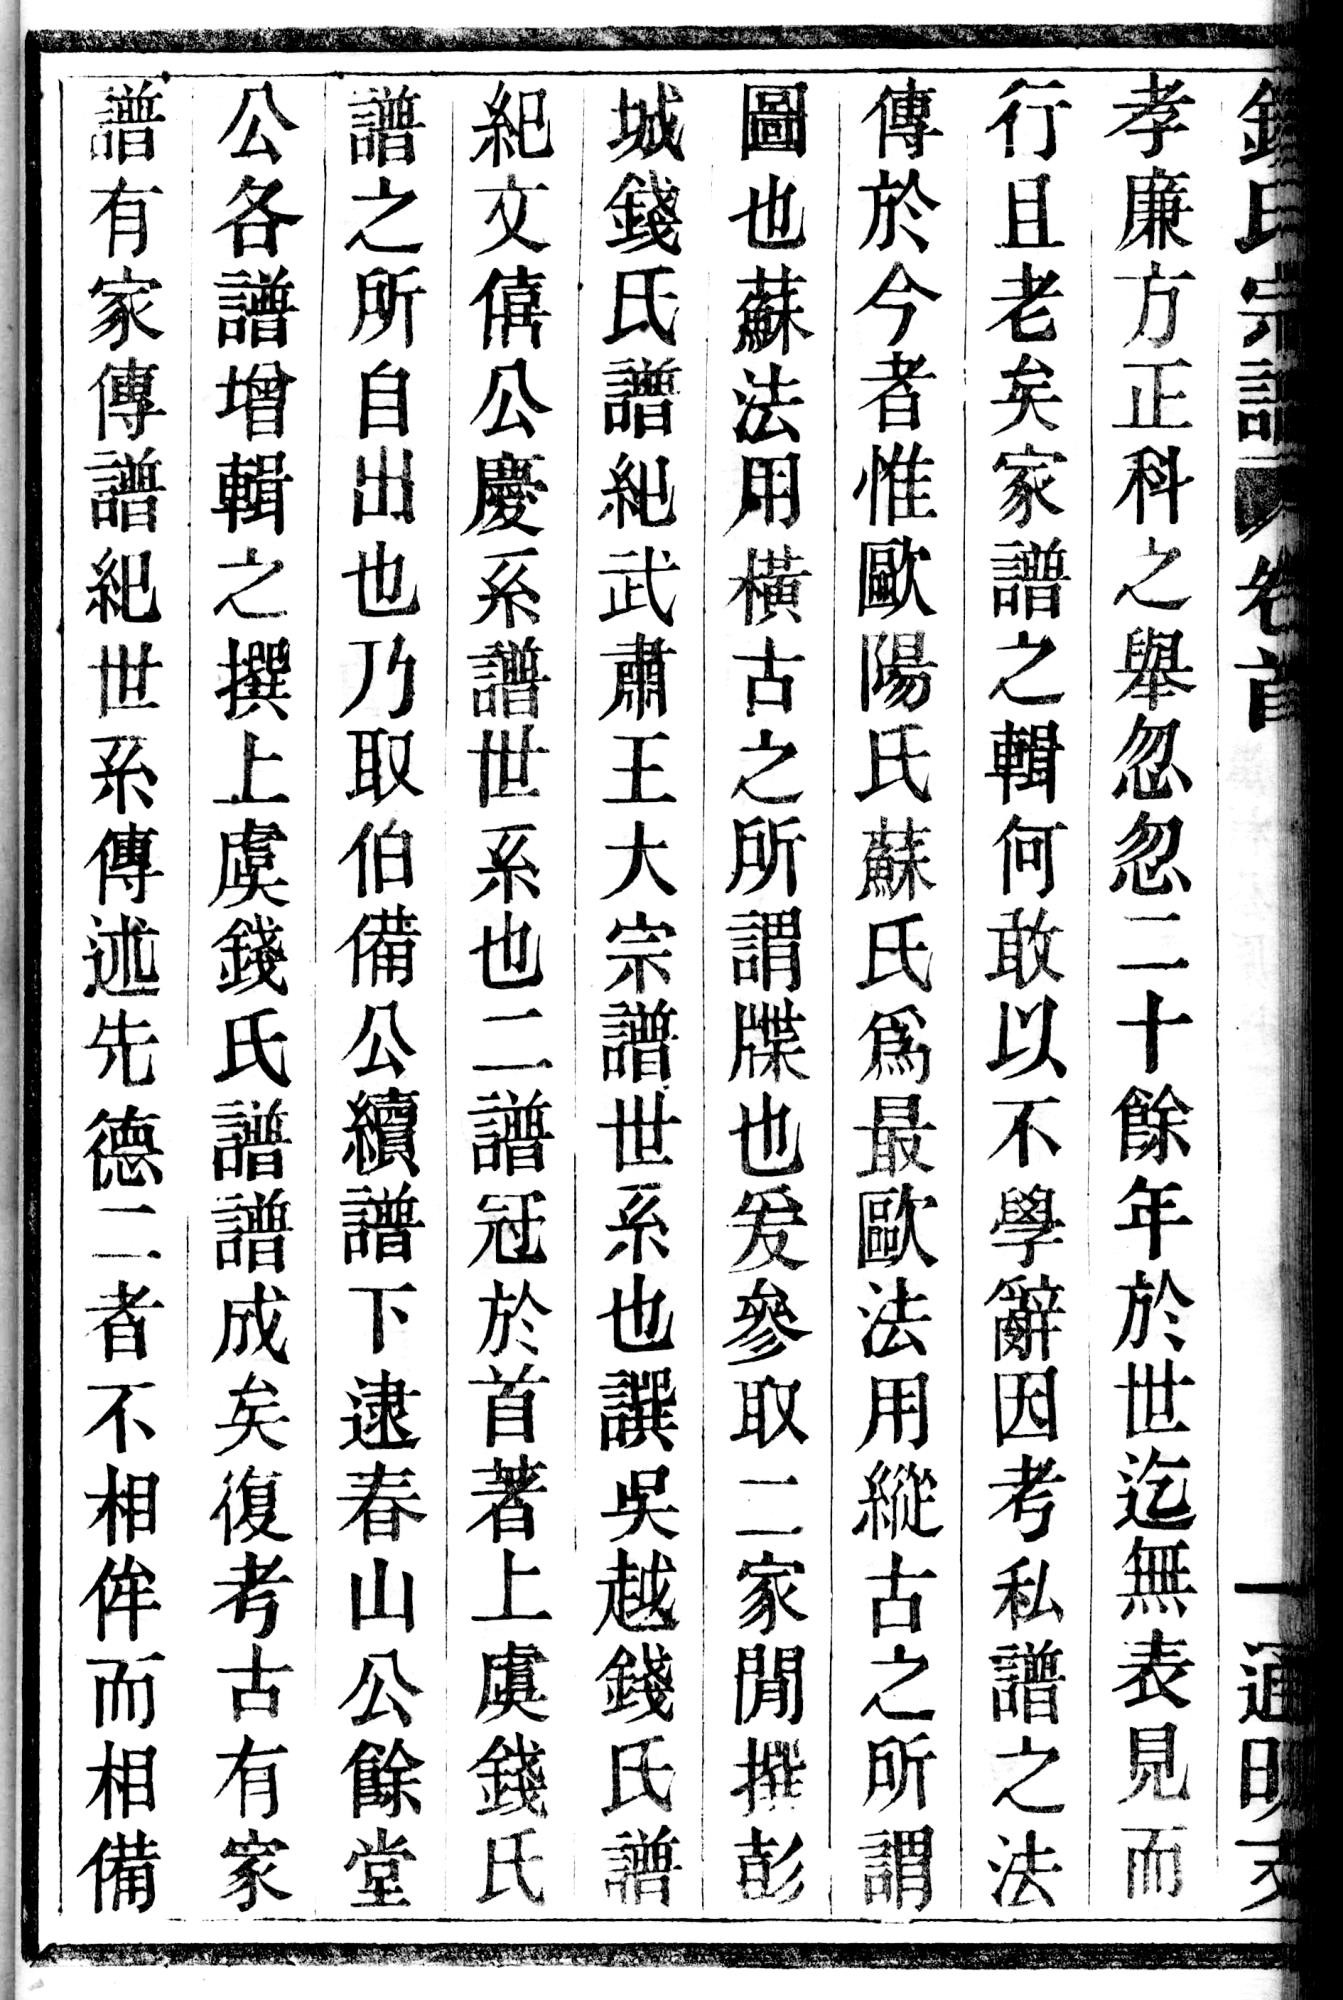 錢氏宗譜 卷首 一 通明
孝廉方正科之舉忽忽二十餘年於世迄無表見而
行且老矣家譜之輯何敢以不學辭因考私譜之法
傳於今者惟歐陽氏蘇氏爲最歐法用縱古之所謂
圖也蘇法用橫古之所謂牒也爰參取二家閒撰彭
城錢氏譜紀武肅王大宗譜世系也譔吳越錢氏譜
紀文僖公慶系譜世系也二譜冠於首著上虞錢氏
譜之所自出也乃取伯備公續譜下逮春山公餘堂
公各譜增輯之撰上虞錢氏譜譜成矣復考古有家
譜有家傳譜紀世系傳述先德二者不相侔而相備